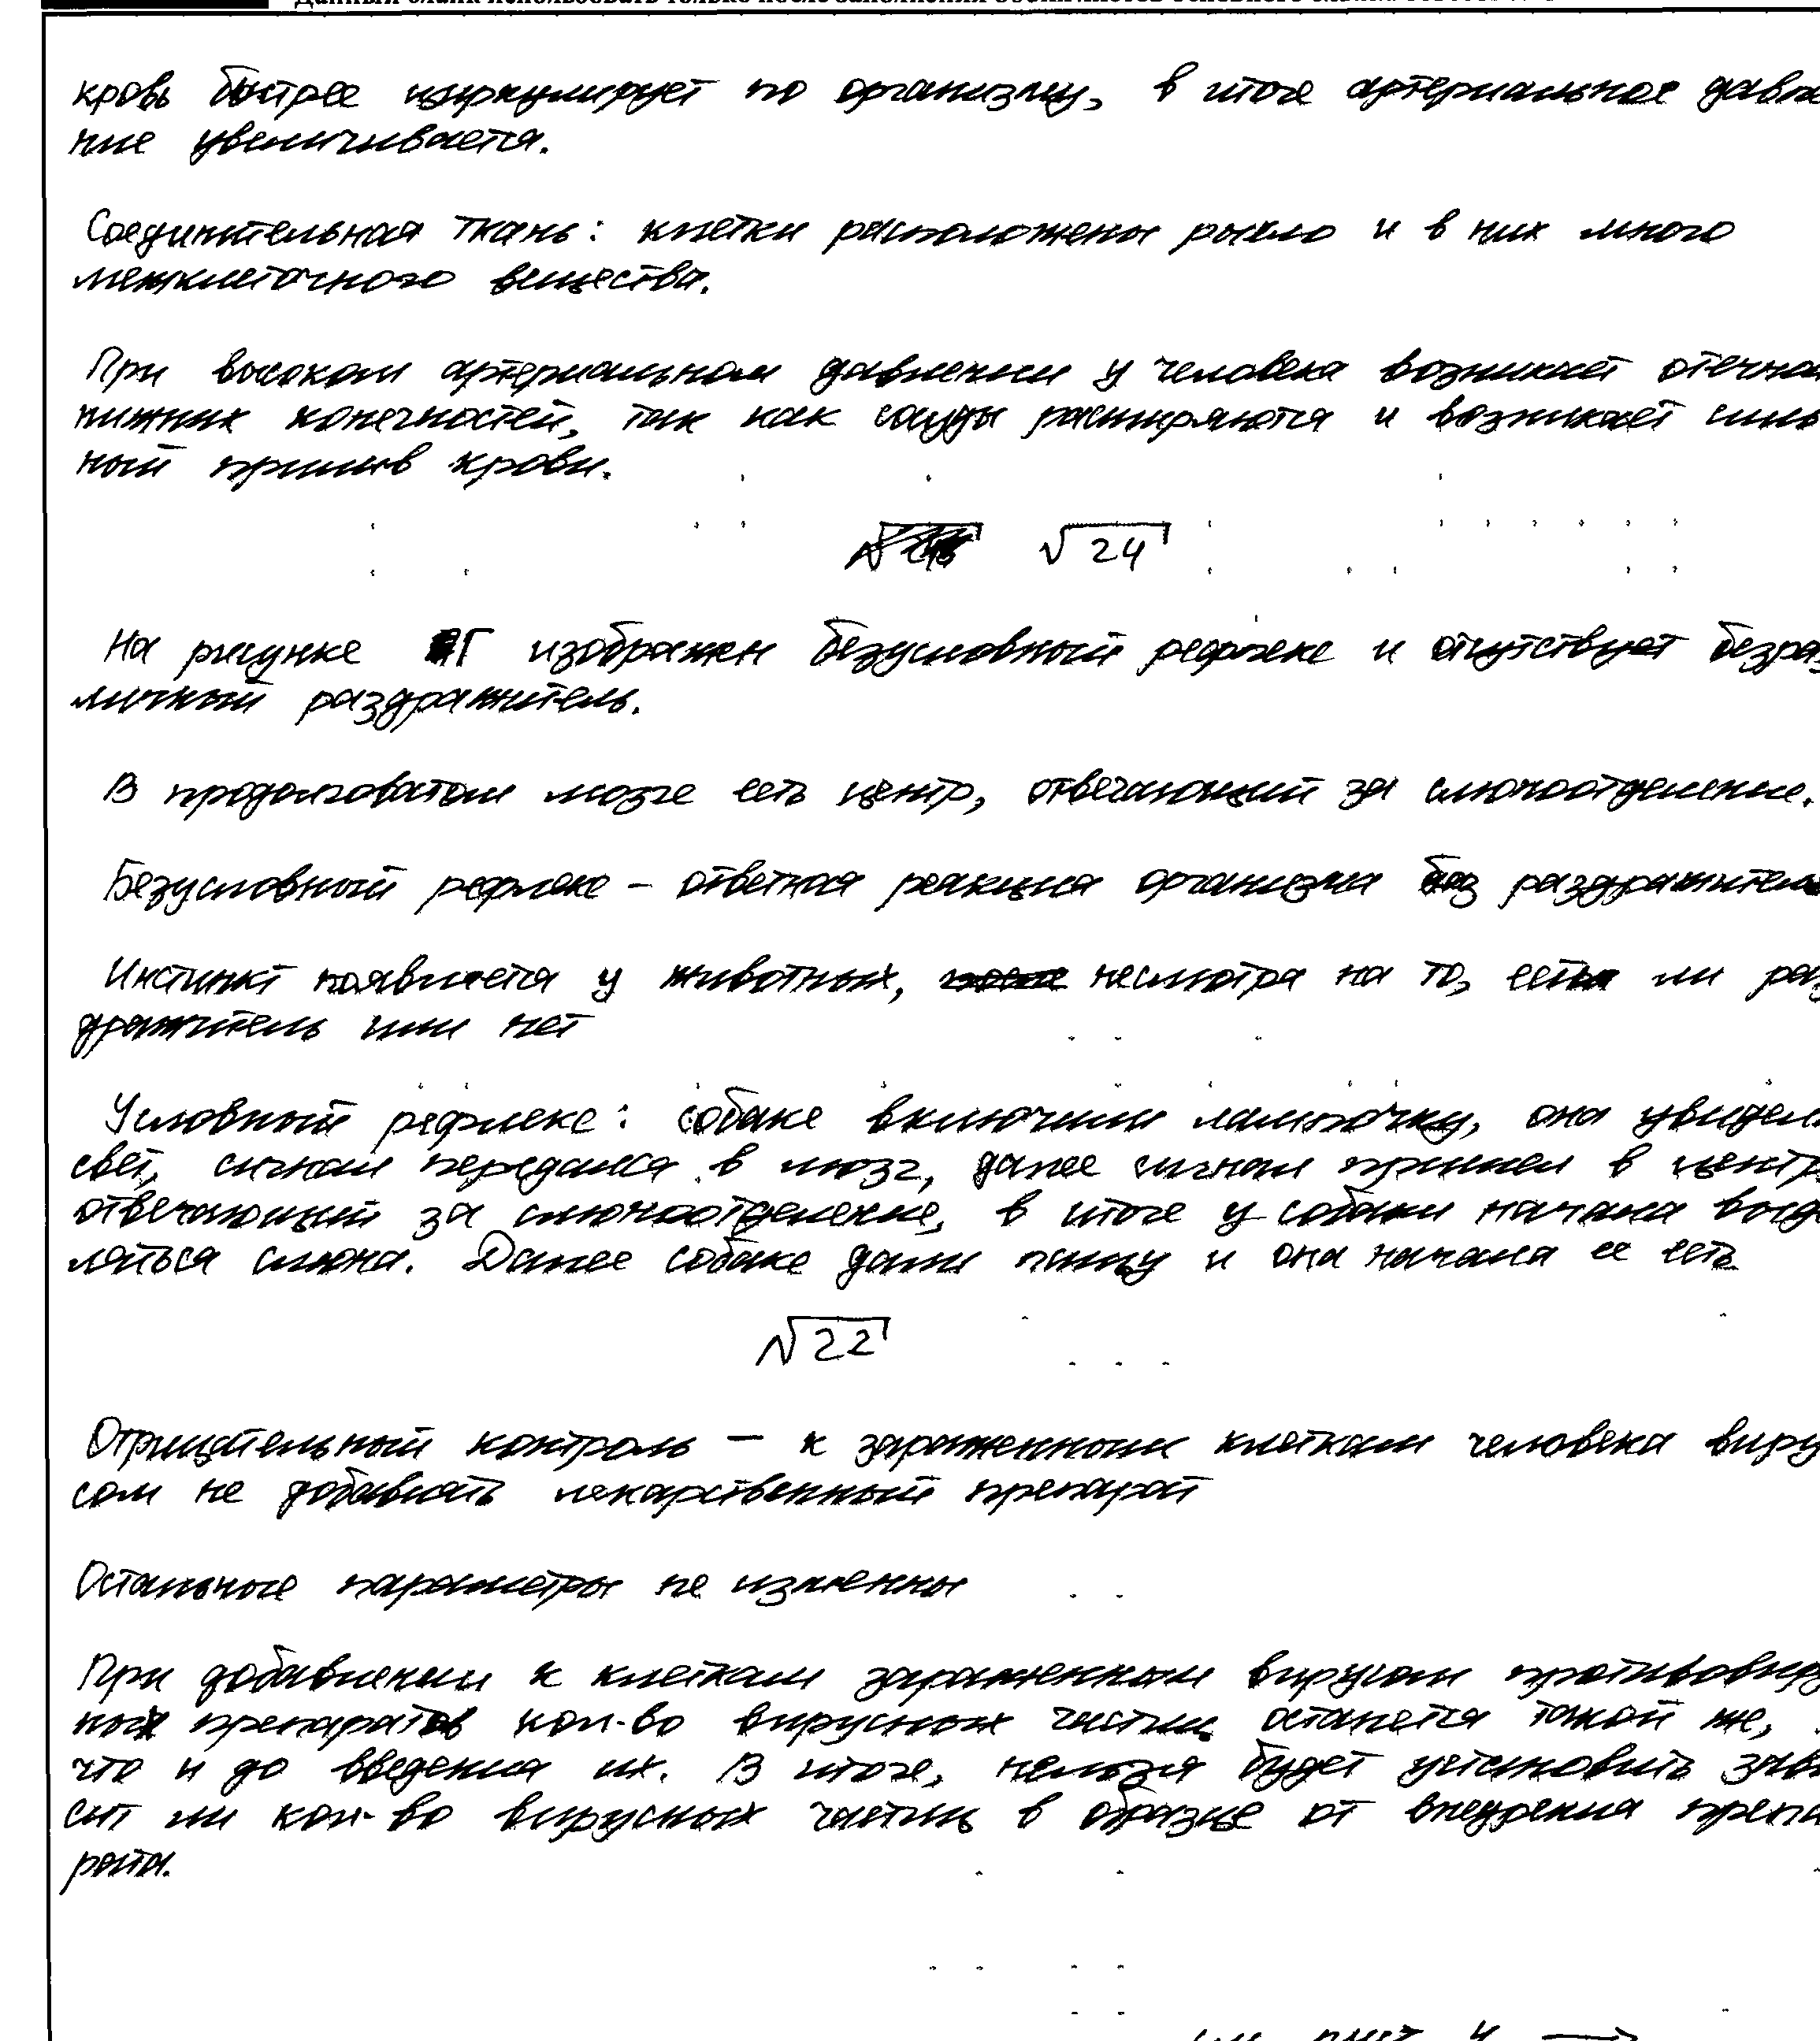 кровь быстрее циркулирует по организму, в итоге артериальное давле
ние увеличивается.
Соединительная ткань: клетки расположены рыхло и в них много
межклеточного вещества.
При высоком артериальном давлении у человека возникает отечно
нижних конечностей, так как сосуды расширяются и возникает силь
ный прилив крови.
√24
На рисунке Г изображен безусловный рефлекс и отсутствует безраз
личный раздражитель.
В продолговатом мозге есть центр, отвечающий за слюноотделение.
Безусловный рефлекс – ответная реакция организма без раздражителя
Инстинкт появляется у животных, несмотря на то, есть ли раз
дражитель или нет
Условный рефлекс: собаке включили лампочку, она увидела
свет, сигнал передался в мозг, далее сигнал пришел в центр
отвечающий за слюноотделение, в итоге у собаки начала выде
ляться слюна. Далее собаке дали пищу и она начала ее есть
√22
Отрицательный контроль – к зараженным клеткам человека виру
сом не добавлять лекарственный препарат
Остальные параметры не изменны
При добавлении к клеткам зараженным вирусом противовирус
ных препаратов кол-во вирусных частиц останется такой же,
что и до введения их. В итоге, нельзя будет установить зави
сит ли кол-во вирусных частиц в образце от внедрения препа
рата.